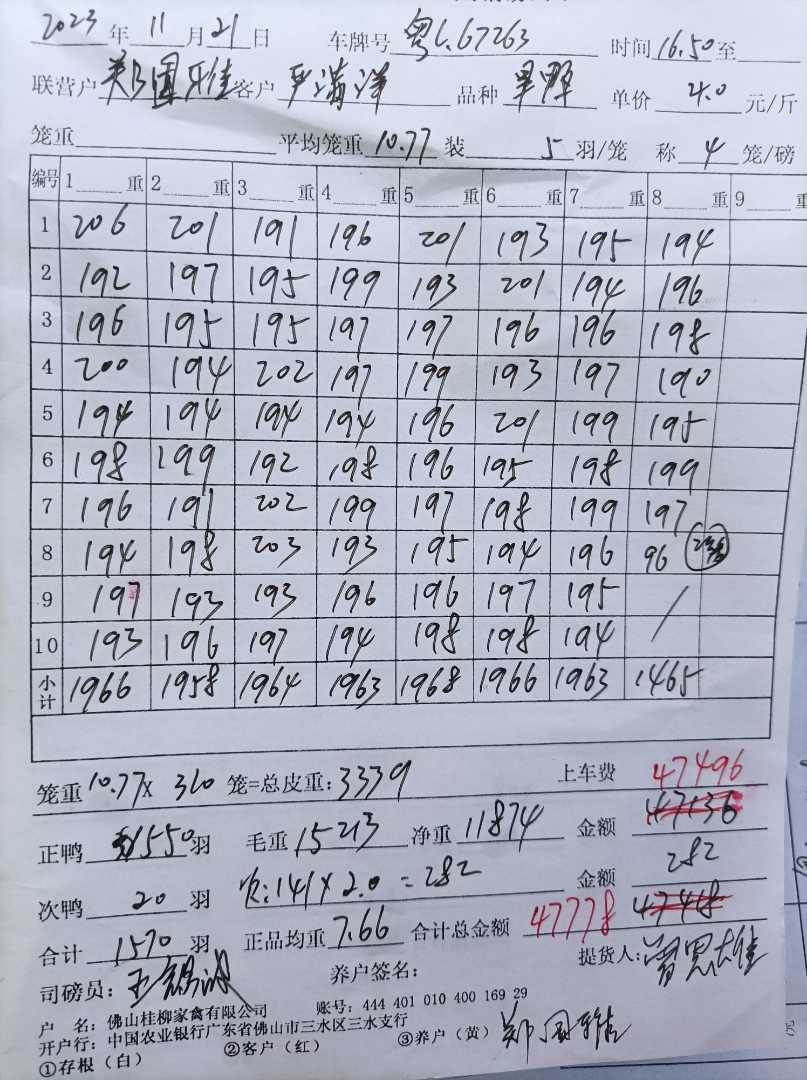 2023 年 11 月 21 日 车牌号 粤L67263 时间 16.50 至
联营户 郑国雅 客户 严满洋 品种 单价 4.0 元/斤
笼重 平均笼重 10.77 装 5 羽/笼 称 4 笼/磅
编号 1 重 2 重 3 重 4 重 5 重 6 重 7 重 8 重 9 重
1 206 201 191 196 201 193 195 194
2 192 197 195 199 193 201 194 196
3 196 195 195 197 197 196 196 198
4 200 194 202 197 199 193 197 190
5 194 194 194 194 196 201 199 195
6 198 199 192 198 196 195 198 199
7 196 191 202 199 197 198 199 197
8 194 198 203 193 195 194 196 96
9 197 193 193 196 196 197 195 /
10 193 196 197 194 198 198 194
小计 1966 1958 1964 1963 1968 1966 1963 1465
笼重 10.77 x 310 笼=总皮重: 3339 上车费 47496
正鸭 1550 羽 毛重 15213 净重 11874 金额 47136
次鸭 20 羽 次: 141 x 2.0 = 282 金额 282
合计 1570 羽 正品均重 7.66 合计总金额 47778 47418
司磅员: 养户签名: 提货人: 曾思雄
户 名: 佛山桂柳家禽有限公司 账号: 444 401 010 400 169 29
开户行: 中国农业银行广东省佛山市三水区三水支行
①存根（白） ②客户（红） ③养户（黄） 郑国雅